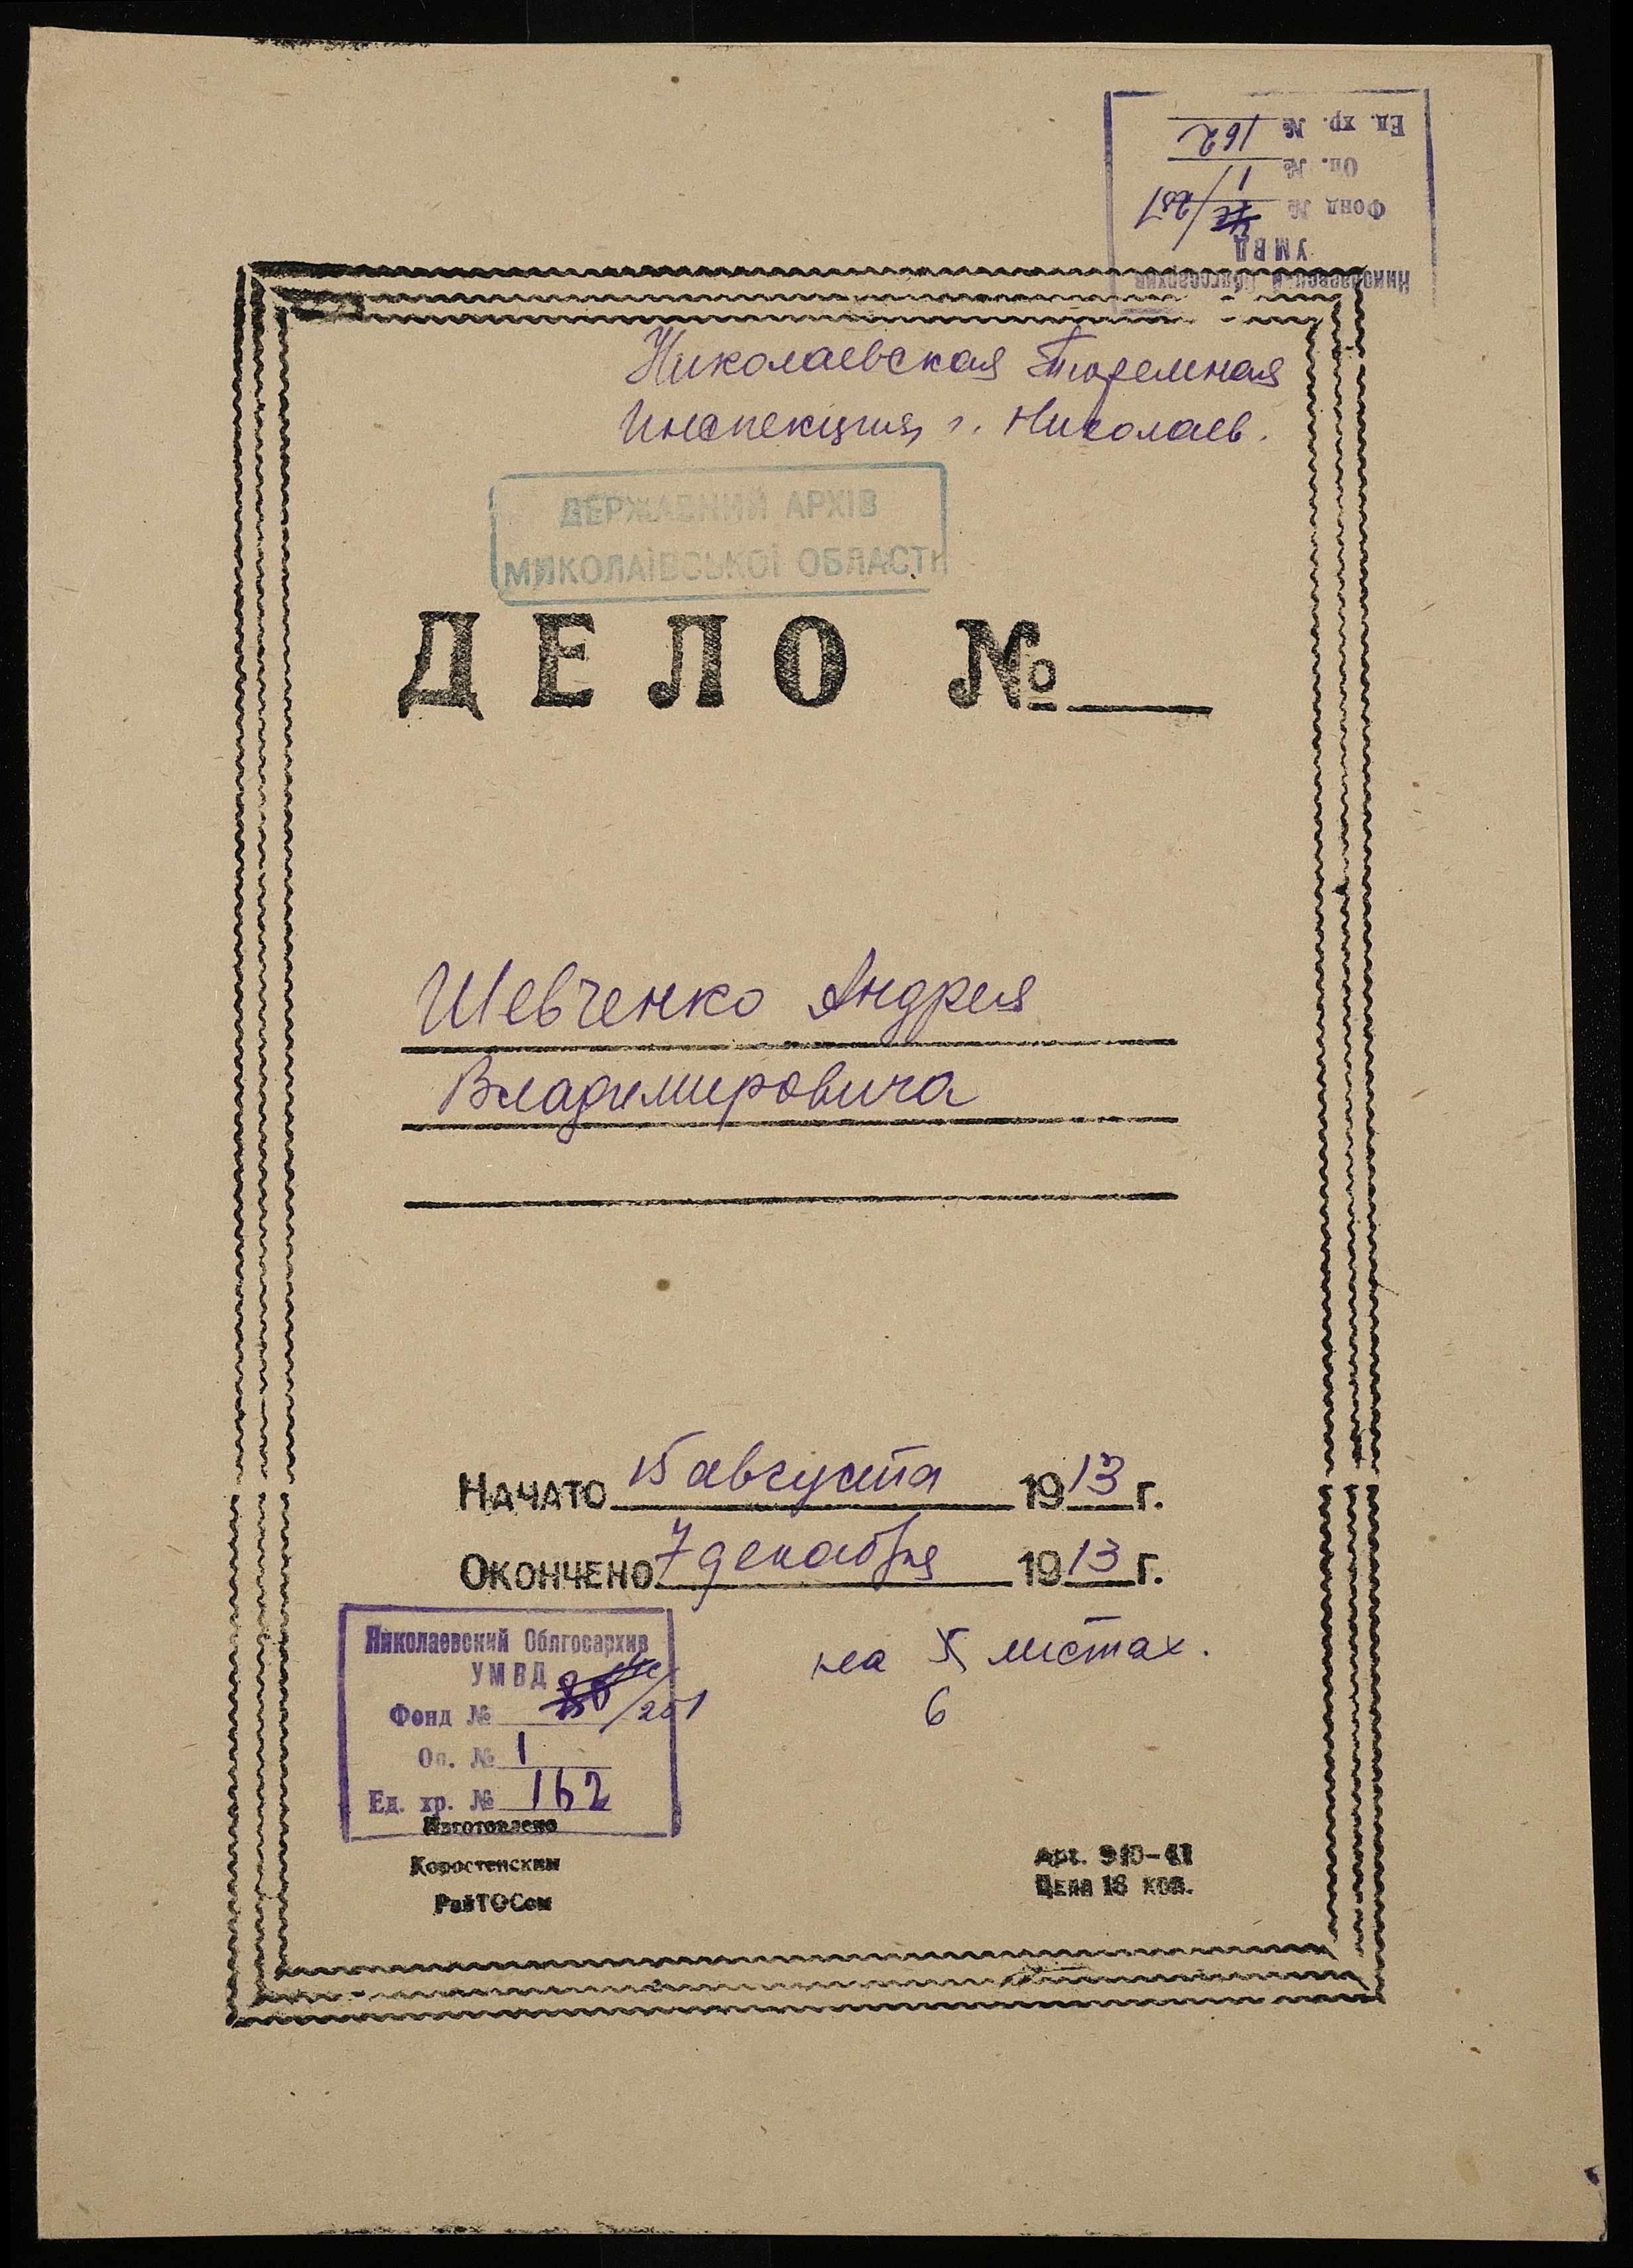 Ед. хр. № 162
Оп. № 1
Фонд № /251
УМВД
Николаевский Облгосархив
Николаевская Тюремная
Инспекция, г. Николаев.
ДЕРЖАВНИЙ АРХІВ
МИКОЛАЇВСЬКОЇ ОБЛАСТІ
ДЕЛО №
Шевченко Андрея
Владимировича
НАЧАТО 15 августа 1913 г.
ОКОНЧЕНО 7 декабря 1913 г.
на 5 листах.
6
Николаевский Облгосархив
УМВД
Фонд № /251
Оп. № 1
Ед. хр. № 162
Изготовлено
Коростенским
РайТОСом
Арт. 910-41
Цена 16 коп.